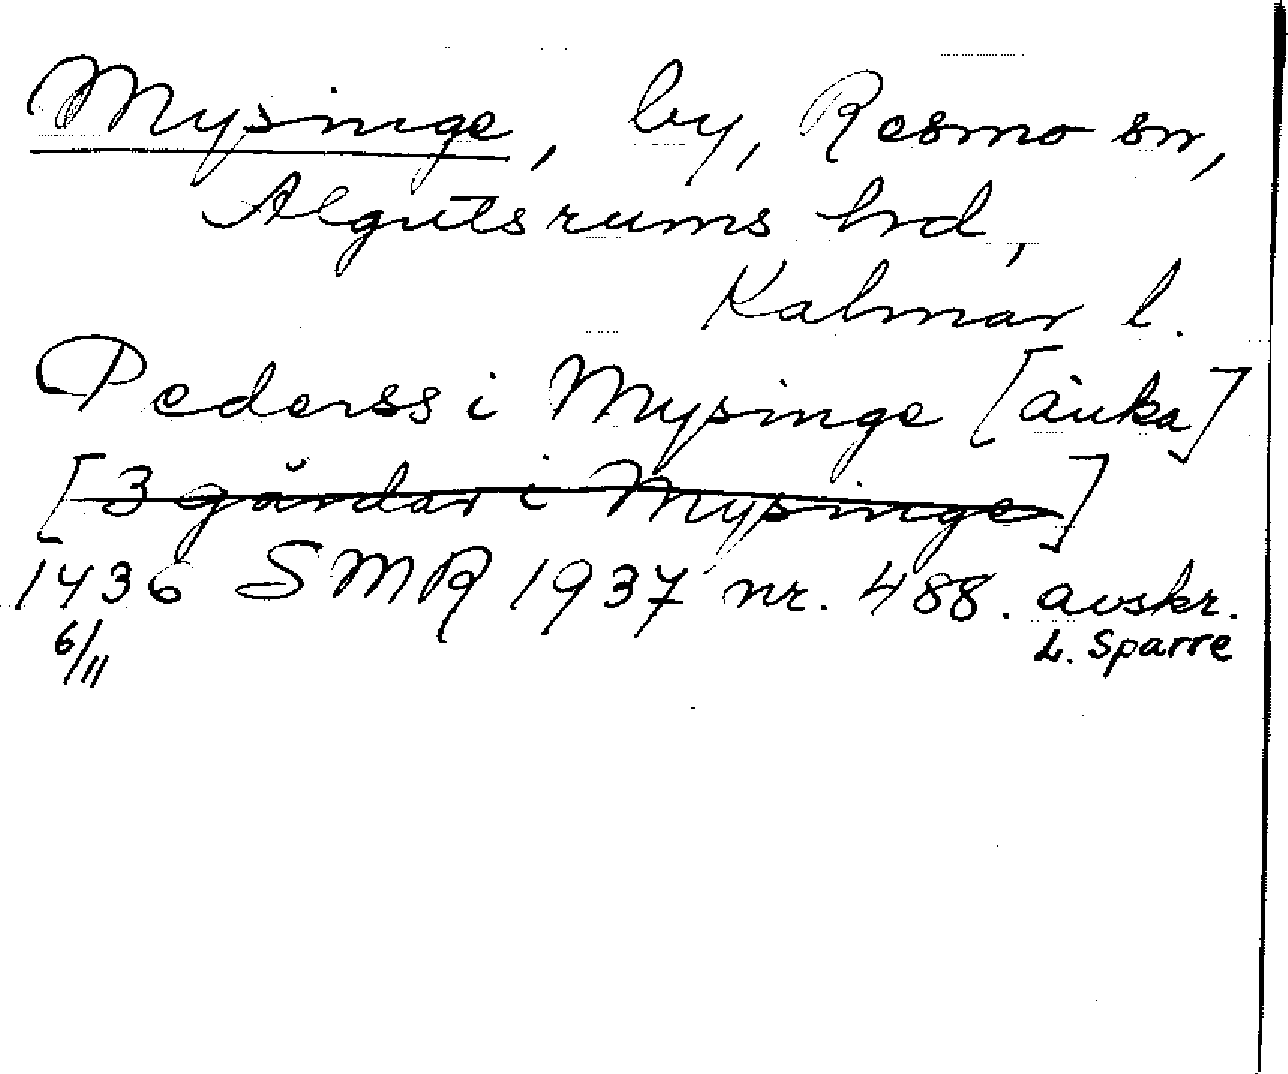 Mysinge, by, Resmo sn,
Algutsrums hrd,
Kalmar l.
Pederss i Mysinge [änka]
[3 gårdar i Mysinge]
1436 SMR 1937 nr. 488. avskr.
6/11 L. Sparre